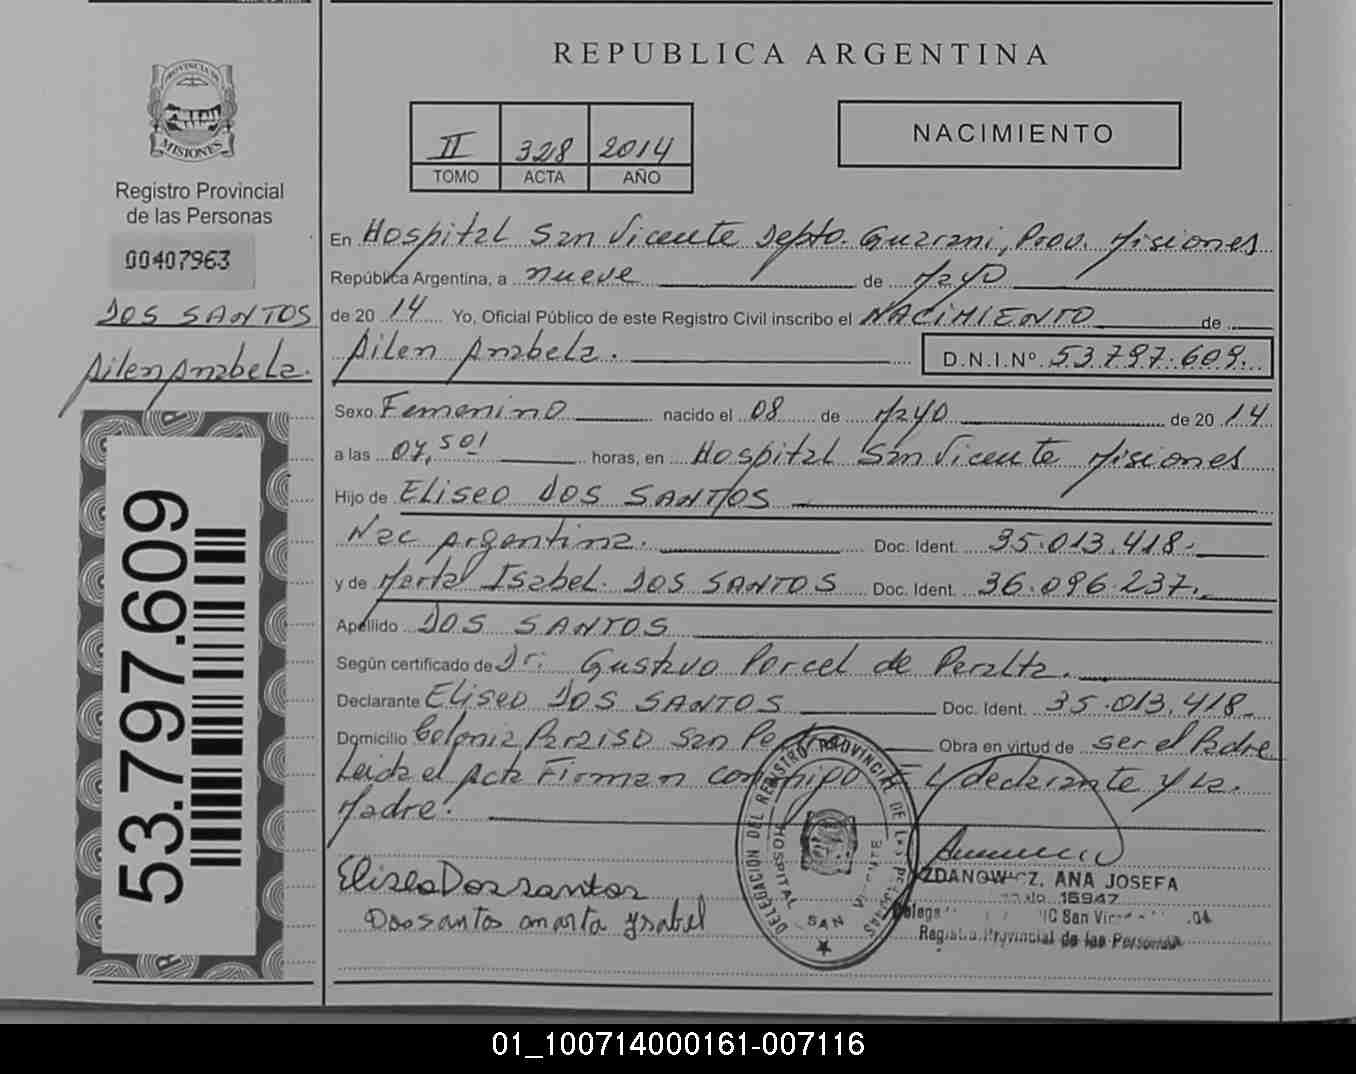 PROVINCIA DE
MISIONES
Registro Provincial
de las Personas
00407963
DOS SANTOS
Ailen Anabela.
53.797.609
REPUBLICA ARGENTINA
II 328 2014
TOMO ACTA AÑO
NACIMIENTO
En Hospital San Vicente Depto. Guarani, Prov. Misiones
República Argentina, a nueve de Mayo
de 20 14 Yo, Oficial Público de este Registro Civil inscribo el NACIMIENTO de
Ailen Anabela. D.N.I.Nº 53.797.609.
Sexo Femenino nacido el 08 de Mayo de 20 14
a las 07,50' horas, en Hospital San Vicente Misiones
Hijo de ELISEO DOS SANTOS
Nac Argentina. Doc. Ident. 35.013.418.
y de Marta Isabel. DOS SANTOS Doc. Ident. 36.096.237.
Apellido DOS SANTOS
Según certificado de Dr. Gustavo Porcel de Peralta.
Declarante ELISEO DOS SANTOS Doc. Ident. 35.013.418.
Domicilio Colonia Paraiso San Pedro Obra en virtud de ser el Padre
Leida el Acta Firman conmigo EL declarante y La
Madre.
Eliseo Dos santos
Dos santos marta ysabel
DELEGACION DEL REGISTRO PROVINCIAL DE LAS PERSONAS
HOSPITAL SAN VICENTE
ZDANOWICZ, ANA JOSEFA
15947
Registro Provincial de las Personas
01_100714000161-007116